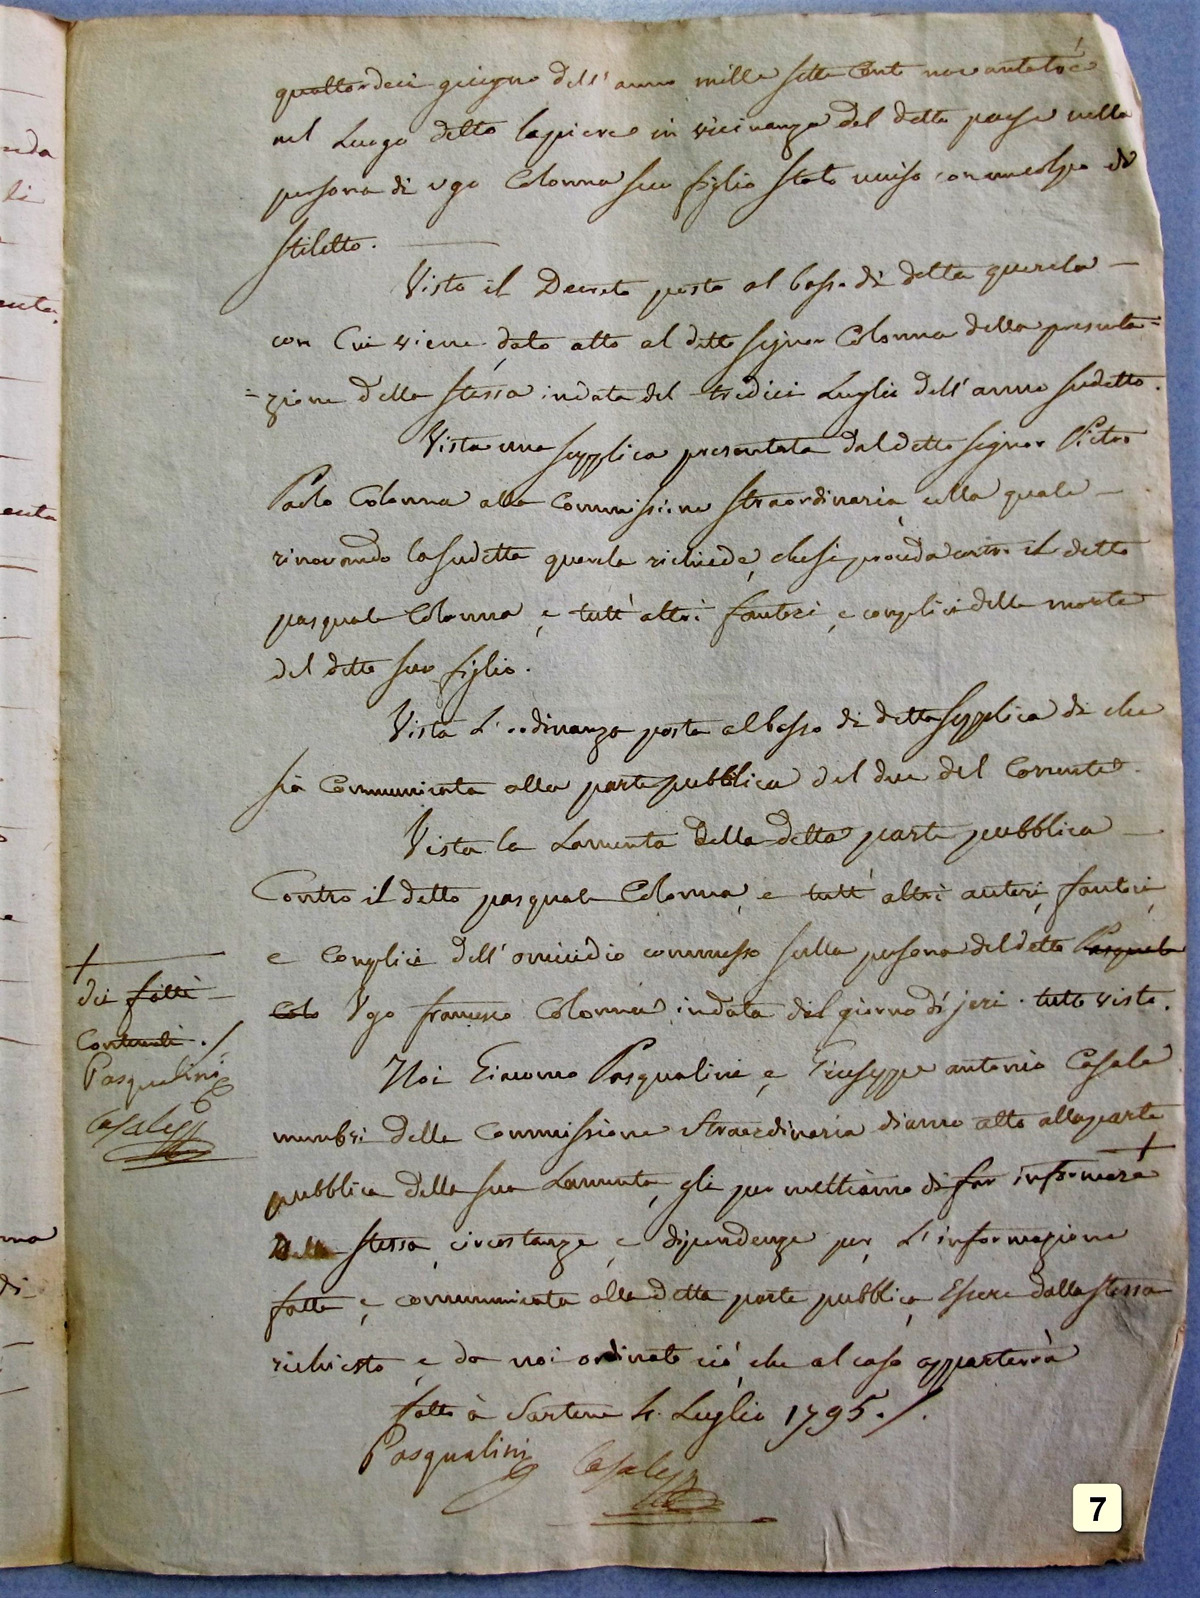 quattordeci giugno dell'anno mille sette cento novanta trè
nel Luogo detto lapieve in vicinanza del detto paese nella
persona di vgo Colonna suo figlio stato uciso con un colpo di
stiletto.
Visto il Decreto posto al basso di detta querela
con Cui viene dato atto al detto signor Colonna della presenta=
=zione della stessa in data del tredici Luglio dell'anno sudetto.
Vista una supplica presentata dal detto signor Pietro
Paolo Colonna alla Commissione straordinaria, colla quale
rinovando la sudetta querela richiede, che si proceda contro il detto
pasquale Colonna, e tutt'altri fautori, e complici della morte
del detto suo figlio.
Vista L'ordinanza posta al basso di detta supplica di che
sia Communicata alla parte pubblica del due del Corrente.
Vista la Lamenta della detta parte pubblica
Contro il detto pasquale Colonna, e tutt'altri autori, fautori,
e Complici dell'omicidio commesso sulla persona del detto Pasquale
Colo Vgo francesco Colonna in data del giorno di jeri. tutto visto.
Noi Giacomo Pasqualini, e Giuseppe antonio Casale
membri della Commissione straordinaria diamo atto alla parte
pubblica della sua Lamenta, gli permettiamo di far informare
Della stessa, circostanze, e dipendenze per, L'informazione
fatta, e communicata alla detta parte pubblica, Essere dalla stessa
richiesto, e da noi ordinato ciò, che al caso appartenerà
fatto à Sartene 4. Luglio 1795./.
Pasqualini Casale
+
dei fatti
Contenuti ./
Pasqualini
Casale
7